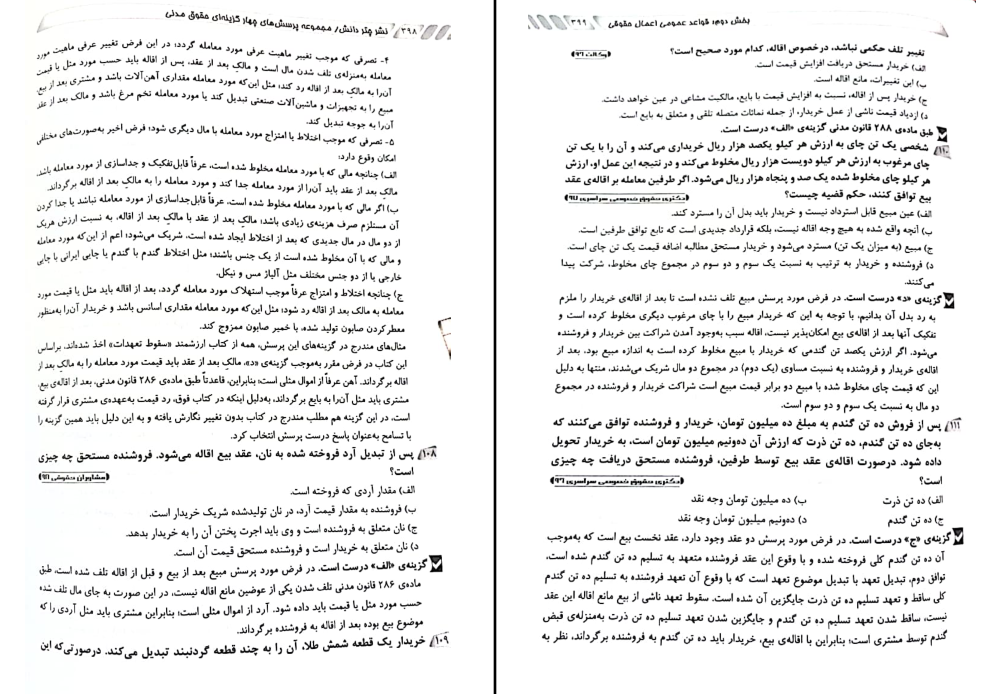 ۳۹۸ نشر چتر دانش/ مجموعه پرسش‌های چهار گزینه‌ای حقوق مدنی
۴- تصرفی که موجب تغییر ماهیت عرفی مورد معامله گردد؛ در این فرض تغییر عرفی ماهیت مورد
معامله به‌منزله‌ی تلف شدن مال است و مالک بعد از عقد، پس از اقاله باید حسب مورد مثل یا قیمت
آن‌را به مالک بعد از اقاله رد کند، مثل این‌که مورد معامله مقداری آهن‌آلات باشد و مشتری بعد از بیع
مبیع را به تجهیزات و ماشین‌آلات صنعتی تبدیل کند یا مورد معامله تخم مرغ باشد و مالک بعد از عقد
آن‌را به جوجه تبدیل کند.
۵- تصرفی که موجب اختلاط یا امتزاج مورد معامله با مال دیگری شود؛ فرض اخیر به‌صورت‌های مختلفی
امکان وقوع دارد:
الف) چنانچه مالی که با مورد معامله مخلوط شده است، عرفاً قابل‌تفکیک و جداسازی از مورد معامله باشد.
مالک بعد از عقد باید آن‌را از مورد معامله جدا کند و مورد معامله را به مالک بعد از اقاله برگرداند.
ب) اگر مالی که با مورد معامله مخلوط شده است، عرفاً قابل‌جداسازی از مورد معامله نباشد یا جدا کردن
آن مستلزم صرف هزینه‌ی زیادی باشد؛ مالک بعد از عقد با مالک بعد از اقاله، به نسبت ارزش هریک
از دو مال در مال جدیدی که بعد از اختلاط ایجاد شده است، شریک می‌شود؛ اعم از این‌که مورد معامله
و مالی که با آن مخلوط شده است از یک جنس باشند؛ مثل اختلاط گندم با گندم یا چایی ایرانی با چایی
خارجی یا از دو جنس مختلف مثل آلیاژ مس و نیکل.
ج) چنانچه اختلاط و امتزاج عرفاً موجب استهلاک مورد معامله گردد، بعد از اقاله باید مثل یا قیمت مورد
معامله به مالک بعد از اقاله رد شود؛ مثل این‌که مورد معامله مقداری اسانس باشد و خریدار آن‌را به‌منظور
معطر کردن صابون تولید شده، با خمیر صابون ممزوج کند.
مثال‌های مندرج در گزینه‌های این پرسش، همه از کتاب ارزشمند «سقوط تعهدات» اخذ شده‌اند. براساس
این کتاب در فرض مقرر به‌موجب گزینه‌ی «د»، مالک بعد از عقد باید قیمت مورد معامله را به مالک بعد از
اقاله برگرداند. آهن عرفاً از اموال مثلی است؛ بنابراین، قاعدتاً طبق ماده‌ی ۲۸۶ قانون مدنی، بعد از اقاله‌ی بیع،
مشتری باید مثل آن‌را به بایع برگرداند، به‌دلیل اینکه در کتاب فوق، رد قیمت به‌عهده‌ی مشتری قرار گرفته
است، در این گزینه هم مطلب مندرج در کتاب بدون تغییر نگارش یافته و به این دلیل باید همین گزینه را
با تسامح به‌عنوان پاسخ درست پرسش انتخاب کرد.
۱۰۸ پس از تبدیل آرد فروخته شده به نان، عقد بیع اقاله می‌شود. فروشنده مستحق چه چیزی
است؟ (مشاوران حقوقی ۹۱)
الف) مقدار آردی که فروخته است.
ب) فروشنده به مقدار قیمت آرد، در نان تولیدشده شریک خریدار است.
ج) نان متعلق به فروشنده است و وی باید اجرت پختن آن را به خریدار بدهد.
د) نان متعلق به خریدار است و فروشنده مستحق قیمت آن است.
گزینه‌ی «الف» درست است. در فرض مورد پرسش مبیع بعد از بیع و قبل از اقاله تلف شده است، طبق
ماده‌ی ۲۸۶ قانون مدنی تلف شدن یکی از عوضین مانع اقاله نیست، در این صورت به جای مال تلف شده
حسب مورد مثل یا قیمت باید داده شود. آرد از اموال مثلی است؛ بنابراین مشتری باید مثل آردی را که
موضوع بیع بوده بعد از اقاله به فروشنده برگرداند.
۱۰۹ خریدار یک قطعه شمش طلا، آن را به چند قطعه گردنبند تبدیل می‌کند. درصورتی‌که این
بخش دوم: قواعد عمومی اعمال حقوقی ۳۹۹
تغییر تلف حکمی نباشد، درخصوص اقاله، کدام مورد صحیح است؟ (وکالت ۹۶)
الف) خریدار مستحق دریافت افزایش قیمت است.
ب) این تغییرات، مانع اقاله است.
ج) خریدار پس از اقاله، نسبت به افزایش قیمت با بایع، مالکیت مشاعی در عین خواهد داشت.
د) ازدیاد قیمت ناشی از عمل خریدار، از جمله نمائات متصله تلقی و متعلق به بایع است.
طبق ماده‌ی ۲۸۸ قانون مدنی گزینه‌ی «الف» درست است.
۱۱۰ شخصی یک تن چای به ارزش هر کیلو یکصد هزار ریال خریداری می‌کند و آن را با یک تن
چای مرغوب به ارزش هر کیلو دویست هزار ریال مخلوط می‌کند و در نتیجه این عمل او، ارزش
هر کیلو چای مخلوط شده یک صد و پنجاه هزار ریال می‌شود. اگر طرفین معامله بر اقاله‌ی عقد
بیع توافق کنند، حکم قضیه چیست؟ (دکتری حقوق خصوصی سراسری ۹۴)
الف) عین مبیع قابل استرداد نیست و خریدار باید بدل آن را مسترد کند.
ب) آنچه واقع شده به هیچ وجه اقاله نیست، بلکه قرارداد جدیدی است که تابع توافق طرفین است.
ج) مبیع (به میزان یک تن) مسترد می‌شود و خریدار مستحق مطالبه اضافه قیمت یک تن چای است.
د) فروشنده و خریدار به ترتیب به نسبت یک سوم و دو سوم در مجموع چای مخلوط، شرکت پیدا
می‌کنند.
گزینه‌ی «د» درست است. در فرض مورد پرسش مبیع تلف نشده است تا بعد از اقاله‌ی خریدار را ملزم
به رد بدل آن بدانیم، با توجه به این که خریدار مبیع را با چای مرغوب دیگری مخلوط کرده است و
تفکیک آنها بعد از اقاله‌ی بیع امکان‌پذیر نیست، اقاله سبب به‌وجود آمدن شراکت بین خریدار و فروشنده
می‌شود. اگر ارزش یکصد تن گندمی که خریدار با مبیع مخلوط کرده است به اندازه مبیع بود، بعد از
اقاله‌ی خریدار و فروشنده به نسبت مساوی (یک دوم) در مجموع دو مال شریک می‌شدند، منتها به دلیل
این که قیمت چای مخلوط شده با مبیع دو برابر قیمت مبیع است شراکت خریدار و فروشنده در مجموع
دو مال به نسبت یک سوم و دو سوم است.
۱۱۱ پس از فروش ده تن گندم به مبلغ ده میلیون تومان، خریدار و فروشنده توافق می‌کنند که
به‌جای ده تن گندم، ده تن ذرت که ارزش آن ده‌ونیم میلیون تومان است، به خریدار تحویل
داده شود. درصورت اقاله‌ی عقد بیع توسط طرفین، فروشنده مستحق دریافت چه چیزی
است؟ (دکتری حقوق خصوصی سراسری ۹۶)
الف) ده تن ذرت ب) ده میلیون تومان وجه نقد
ج) ده تن گندم د) ده‌ونیم میلیون تومان وجه نقد
گزینه‌ی «ج» درست است. در فرض مورد پرسش دو عقد وجود دارد، عقد نخست بیع است که به‌موجب
آن ده تن گندم کلی فروخته شده و با وقوع این عقد فروشنده متعهد به تسلیم ده تن گندم شده است،
توافق دوم، تبدیل تعهد با تبدیل موضوع تعهد است که با وقوع آن تعهد فروشنده به تسلیم ده تن گندم
کلی ساقط و تعهد تسلیم ده تن ذرت جایگزین آن شده است. سقوط تعهد ناشی از بیع مانع اقاله این عقد
نیست، ساقط شدن تعهد تسلیم ده تن گندم و جایگزین شدن تعهد تسلیم ده تن ذرت به‌منزله‌ی قبض
گندم توسط مشتری است؛ بنابراین با اقاله‌ی بیع، خریدار باید ده تن گندم به فروشنده برگرداند، نظر به